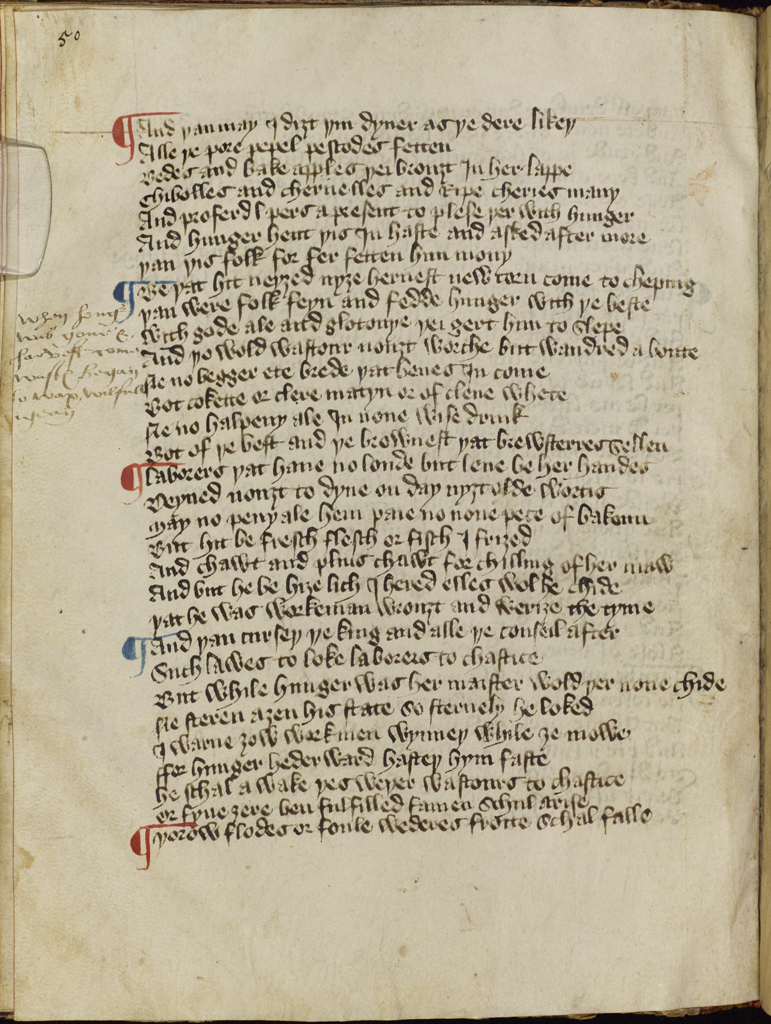 50
And yan may I diȝt ym dyner as ye dere likey
Alle ye pore pepel pescodes fetten
Benes and bake apples yei brouȝt In her lappe
Chibolles and cheruelles and Ripe cheries many
And proferd pers a present to plese yer with hunger
And hunger hent yis In haste and asked after more
yan yis folk for fer fetten him mony
be yat hit neyȝed nyȝe heruest new corn come to cheping
yan were folk feyn and fedde hunger with ye beste
With gode ale and glotonye yei gert him to slepe
And yo wold wastour nouȝt worche but wandred a boute
Ne no begger ete brede yat benes In come
Bot cokette or clere matyn or of clene whete
Ne no halpeny ale In none wise drink
Bot of ye best and ye brownest yat brewsterres sellen
laborers yat haue no londe but leue be her handes
Deyned nouȝt to dyne on day nyȝt olde wortis
may no peny ale hem paie no none pece of bakoun
But hit be fresch flesch or fisch I frized
And chawt and pluis chawt for chilling of her maw
And but he be hiȝe lich I hered elles wol he chide
yat he was werkeman wrouȝt and werize the tyme
And yan cursey ye king and alle ye conseil after
Such lawes to loke laborers to chastice
But while hunger was her maister wold yer none chide
Ne steren aȝen his state so sternely he loked
I warne ȝow werkmen wynney while ȝe mowe
ffor hunger heder ward hastey hym faste
he schal a wake yes weyer wastours to chastice
or fyue ȝere ben fulfilled famen schul arise
yorow flodes or foule wederes frotte schal falle
when
was gone &
harvest come
wast began
to wax wilfull
again